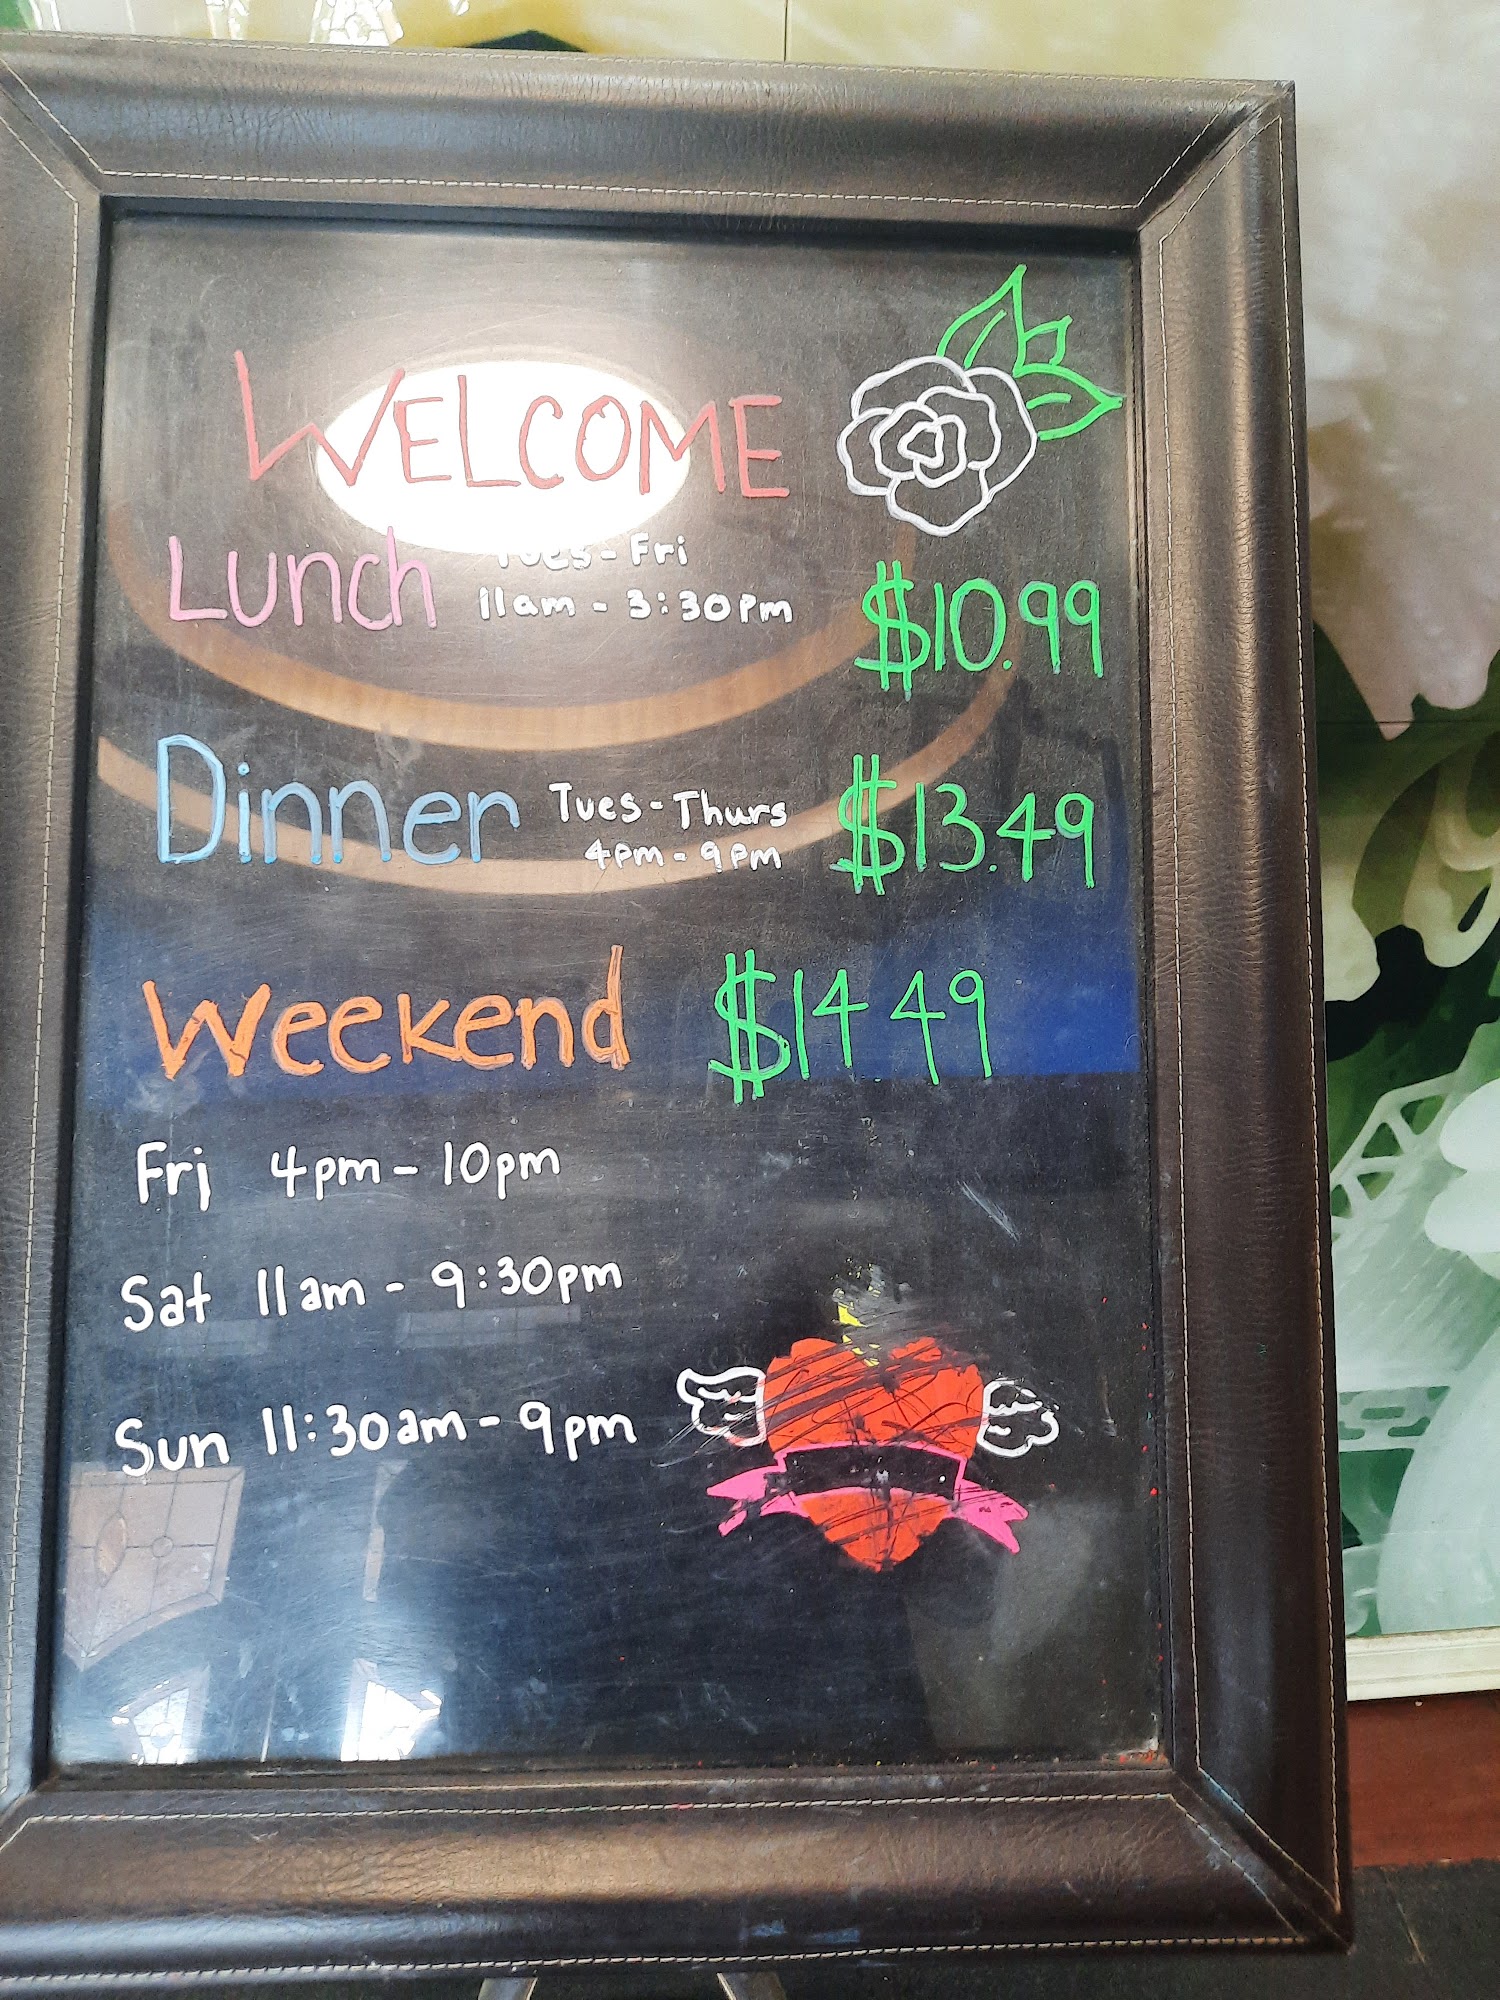 WELCOME
Lunch Tues-Fri $10.99
11am - 3:30pm
Dinner Tues-Thurs $13.49
4pm - 9pm
Weekend $14 49
Fri 4pm - 10pm
Sat 11am - 9:30pm
Sun 11:30am - 9pm